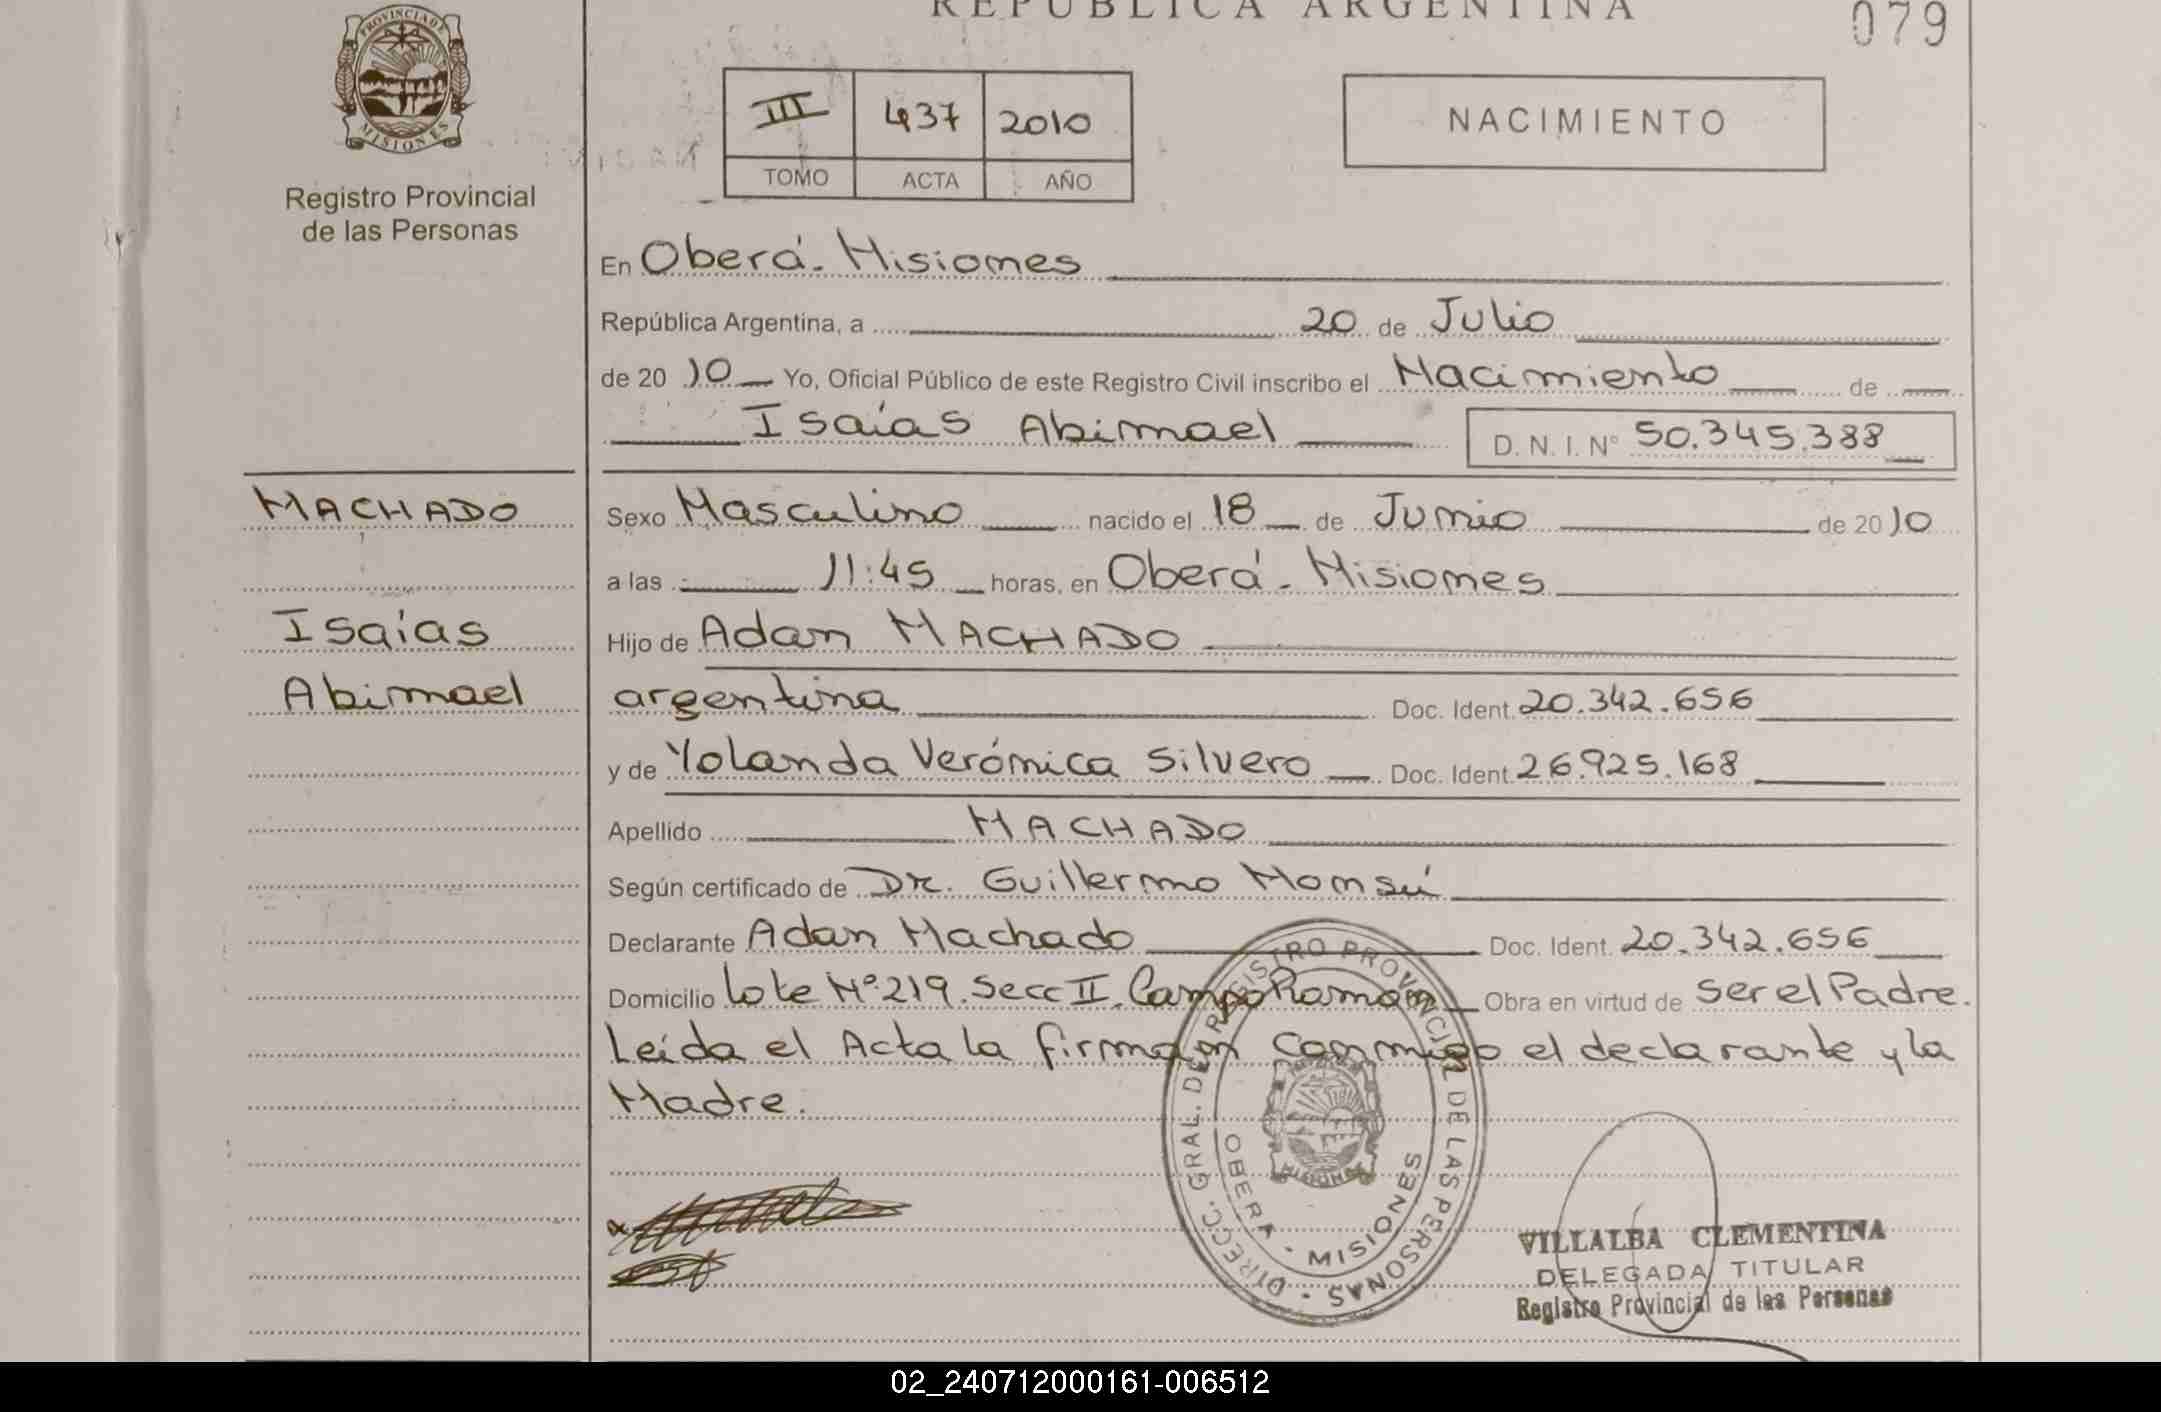 REPUBLICA ARGENTINA
079
PROVINCIA DE
MISIONES
Registro Provincial
de las Personas
III 437 2010
TOMO ACTA AÑO
NACIMIENTO
En Oberá - Misiones
República Argentina, a 20 de Julio
de 2010 Yo, Oficial Público de este Registro Civil inscribo el Nacimiento de
Isaías Abimael D. N. I. N° 50.345.388
MACHADO
Isaías
Abimael
Sexo Masculino nacido el 18 de Junio de 2010
a las 11:45 horas, en Oberá - Misiones
Hijo de Adan MACHADO
argentina Doc. Ident. 20.342.656
y de Yolanda Verónica Silvero Doc. Ident. 26.925.168
Apellido MACHADO
Según certificado de Dr. Guillermo
Declarante Adan Machado Doc. Ident. 20.342.656
Domicilio Lote Nº 219. Secc II. Campo Ramon Obra en virtud de ser el Padre.
Leída el Acta la firman conmigo el declarante y la
Madre.
DIRECC. GRAL. DEL REGISTRO PROVINCIAL DE LAS PERSONAS
OBERA - MISIONES
VILLALBA CLEMENTINA
DELEGADA TITULAR
Registro Provincial de las Personas
02_240712000161-006512